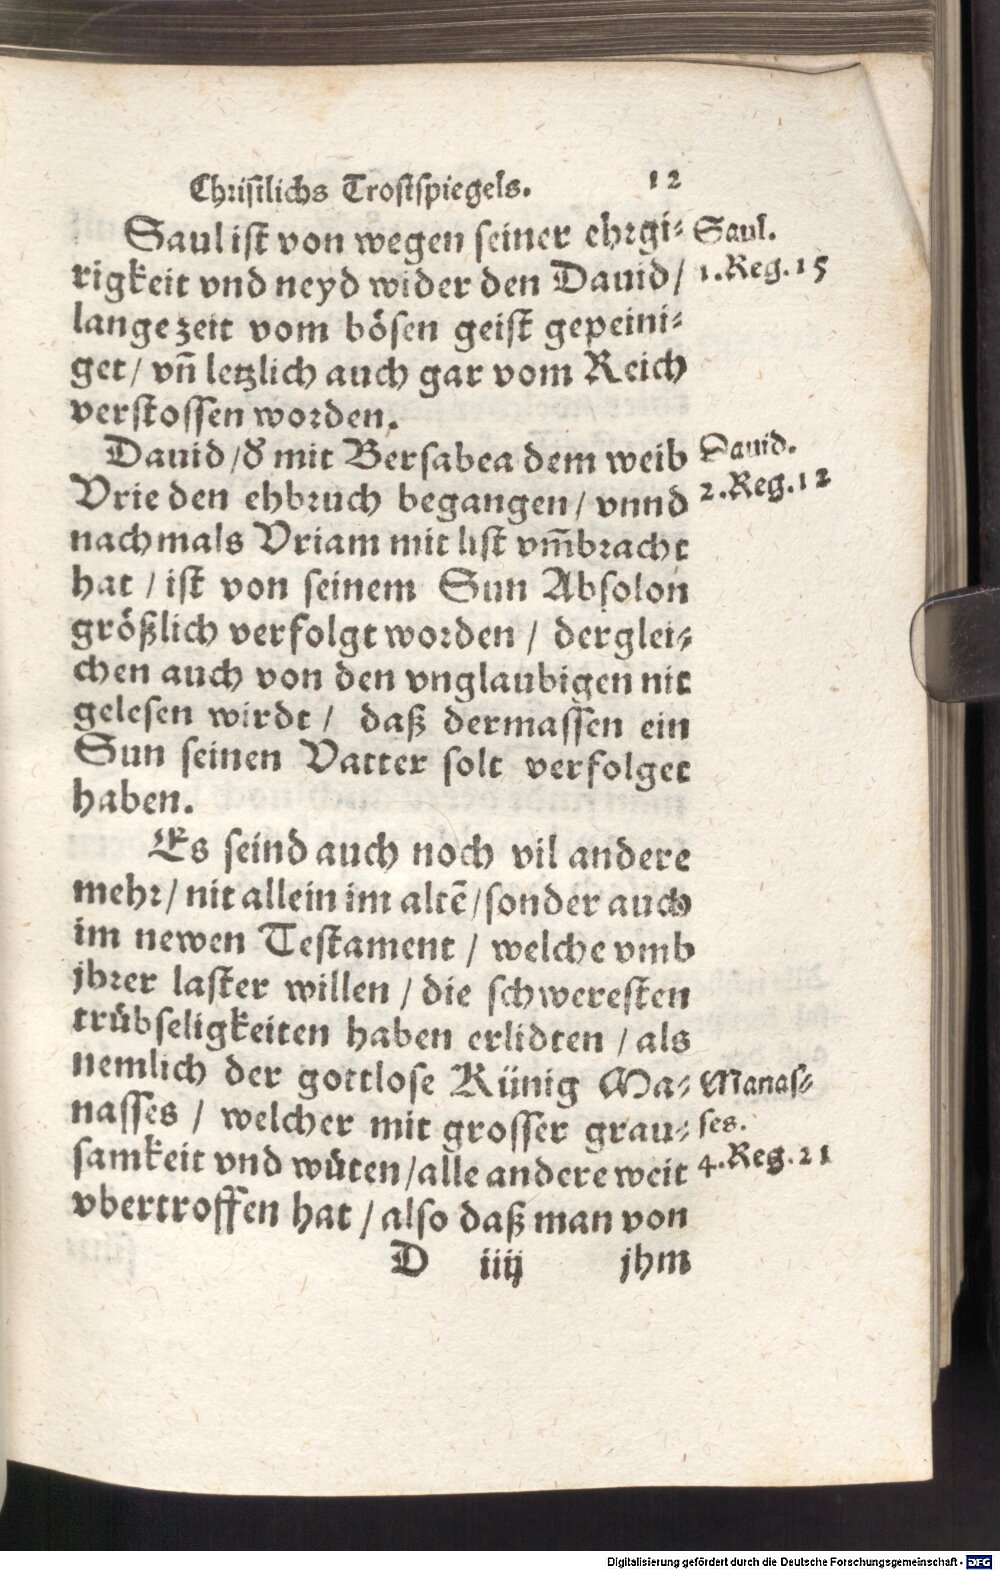 Christlichs Trostspiegels. 12
Saul ist von wegen seiner ehrgi⸗ Saul.
rigkeit vnd neyd wider den Dauid/ 1.Reg.15
lange zeit vom bösen geist gepeini⸗
get/ vñ letzlich auch gar vom Reich
verstossen worden.
Dauid/ď mit Bersabea dem weib Dauid.
Vrie den ehbruch begangen/ vnnd 2.Reg.12
nachmals Vriam mit list vm̃bracht
hat/ ist von seinem Sun Absolon
größlich verfolgt worden/ derglei⸗
chen auch von den vnglaubigen nit
gelesen wirdt/ daß dermassen ein
Sun seinen Vatter solt verfolget
haben.
Es seind auch noch vil andere
mehr/ nit allein im altẽ/ sonder auch
im newen Testament/ welche vmb
jhrer laster willen/ die schweresten
trübseligkeiten haben erlidten/ als
nemlich der gottlose Künig Ma⸗ Manas⸗
nasses/ welcher mit grosser grau⸗ ses.
samkeit vnd wüten/alle andere weit 4.Reg.21
vbertroffen hat/ also daß man von
D iiij jhm
Digitalisierung gefördert durch die Deutsche Forschungsgemeinschaft - DFG